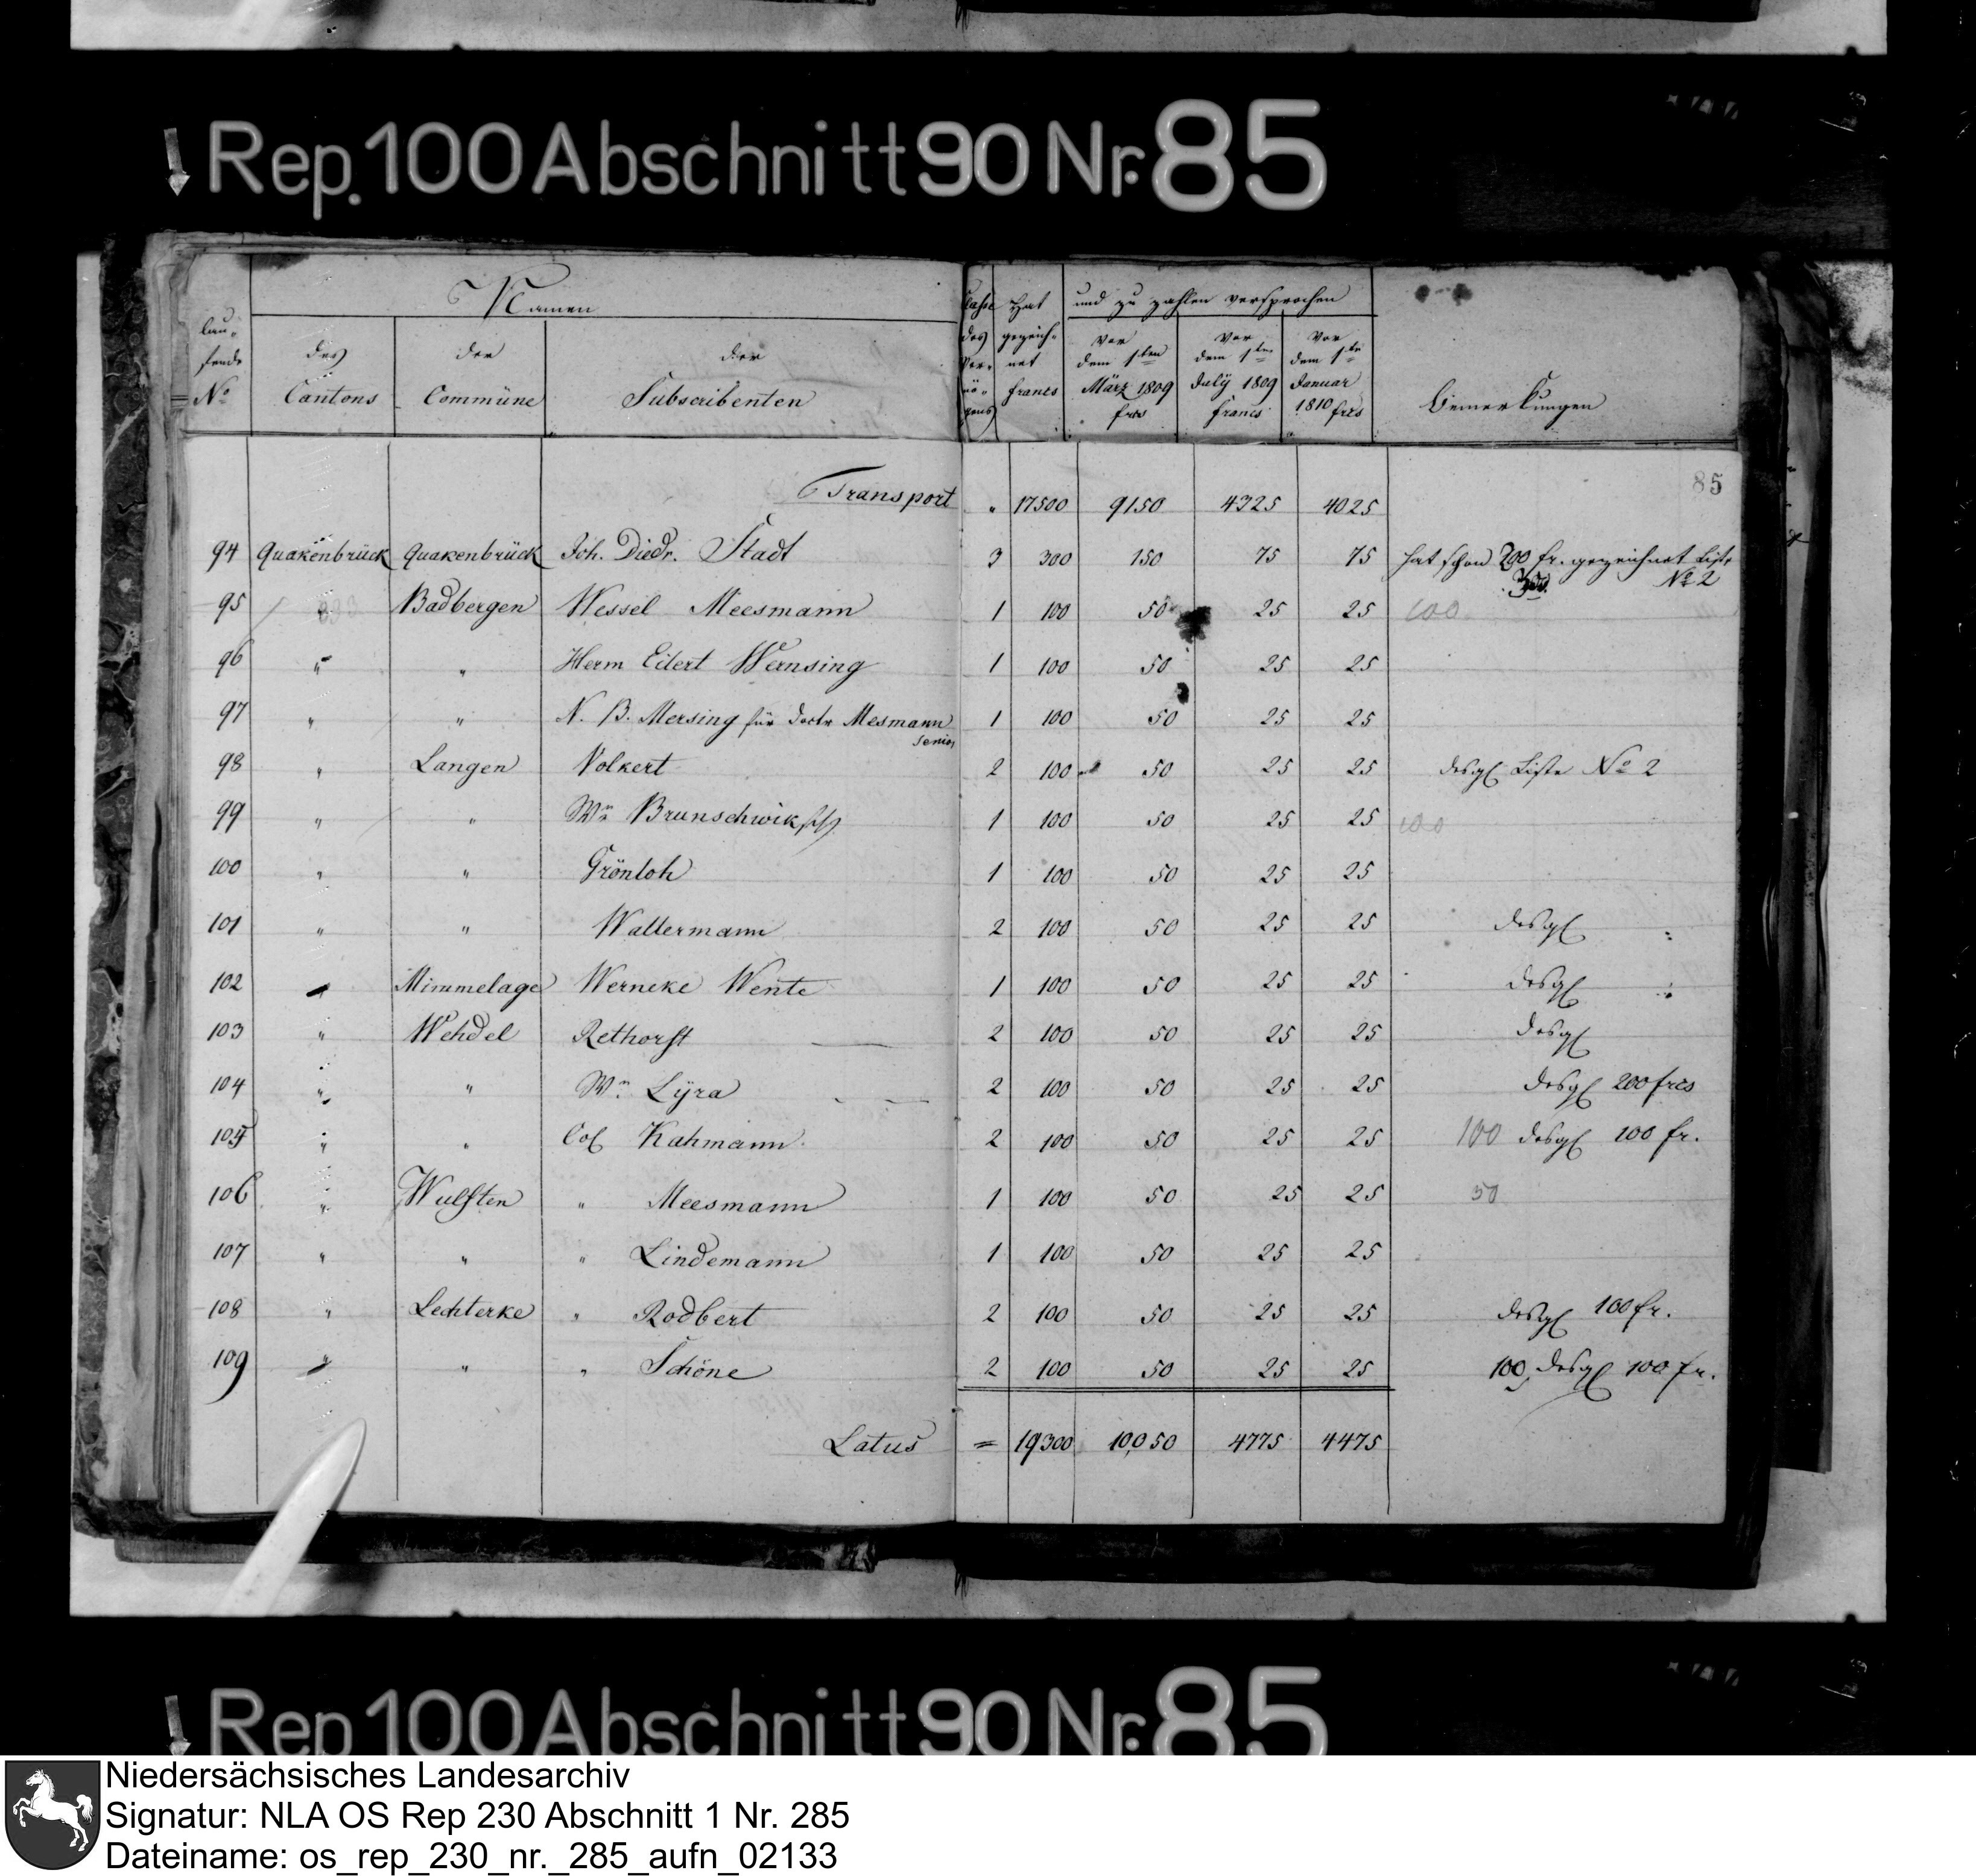 Rep. 100 Abschnitt 90 Nr. 85
Namen
lau-
fende
No
des
Cantons
der
Commüne
der
Subscribenten
Classe
des
Ver-
mö-
gens
Hat
gezeich-
net
francs
und zu zahlen versprochen
vor
dem 1ten
März 1809
frcs
vor
dem 1ten
July 1809
francs
vor
dem 1te
Januar
1810 frcs
Bemerkungen
85
Transport " 17500 9150 4325 4025
94 Quakenbrück Quakenbrück Joh. Diedr. Stadt 3 300 150 75 75 hat schon 200 fr. gezeichnet Liste
No 2
95 Badbergen Wessel Meesmann 1 100 50 25 25 100
96 " " Herm Eilert Wernsing 1 100 50 25 25
97 " " N. B. Mersing für Doctr Mesmann 1 100 50 25 25
senior
98 " Langen Volkert 2 100 50 25 25 desgl Liste No 2
99 " " Wn Brunschwik 1 100 50 25 25 100
100 " " Grönloh 1 100 50 25 25
101 " " Waltermann 2 100 50 25 25 desgl "
102 " Mimmelage Werneke Wente 1 100 50 25 25 desgl "
103 " Wehdel Rethorst 2 100 50 25 25 desgl
104 " " Wn Lÿra 2 100 50 25 25 desgl 200 frcs
105 " " Col Kahmann 2 100 50 25 25 100 desgl 100 fr.
106 " Wulften " Meesmann 1 100 50 25 25 50
107 " " " Lindemann 1 100 50 25 25
108 " Lechterke " Rodbert 2 100 50 25 25 desgl 100 fr.
109 " " " Schöne 2 100 50 25 25 100 desgl 100 fr.
Latus = 19300 10050 4775 4475
Rep 100 Abschnitt 90 Nr. 85
Niedersächsisches Landesarchiv
Signatur: NLA OS Rep 230 Abschnitt 1 Nr. 285
Dateiname: os_rep_230_nr._285_aufn_02133